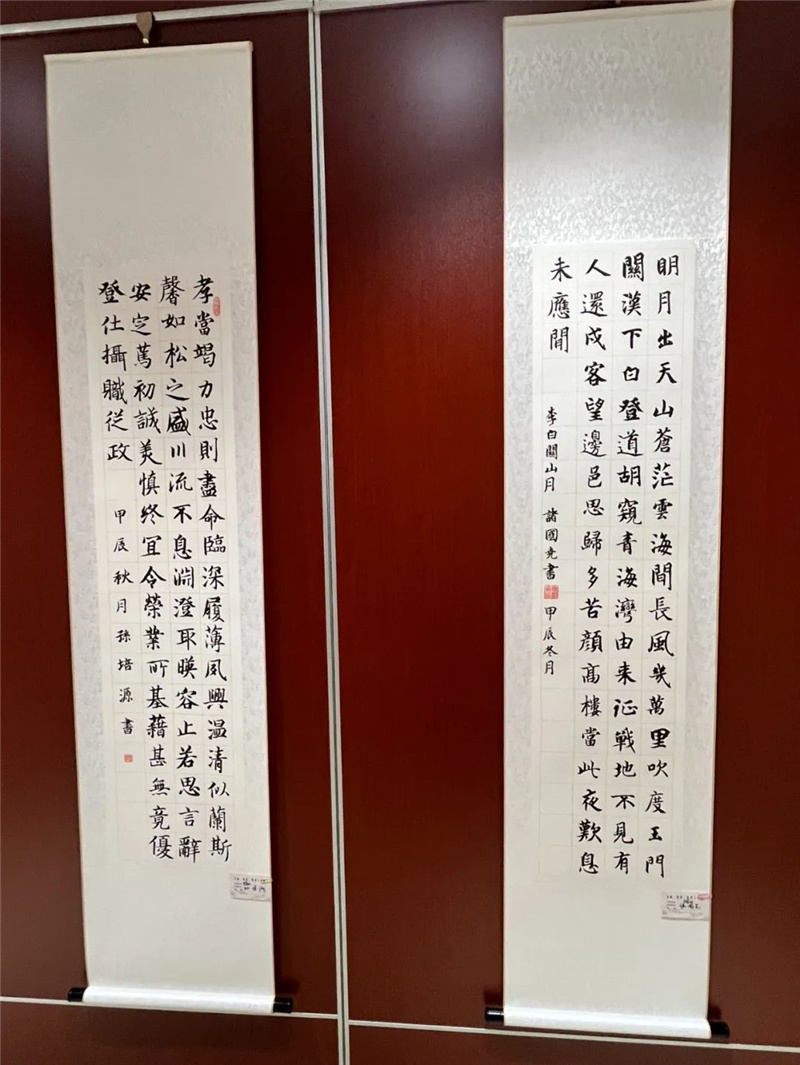 明月出天山蒼茫雲海間長風幾萬里吹度玉門
關漢下白登道胡窺青海灣由来征戰地不見有
人還成客望邊邑思歸多苦顔高樓當此夜歎息
未應閒
李白關山月 諸國書 甲辰冬月
孝當竭力忠則盡命臨深履薄夙興温清似蘭斯
馨如松之盛川流不息淵澄取暎容止若思言辭
安定篤初誠美慎終宜令榮業所基藉甚無竟優
登仕攝職従政
甲辰秋月孫培源書